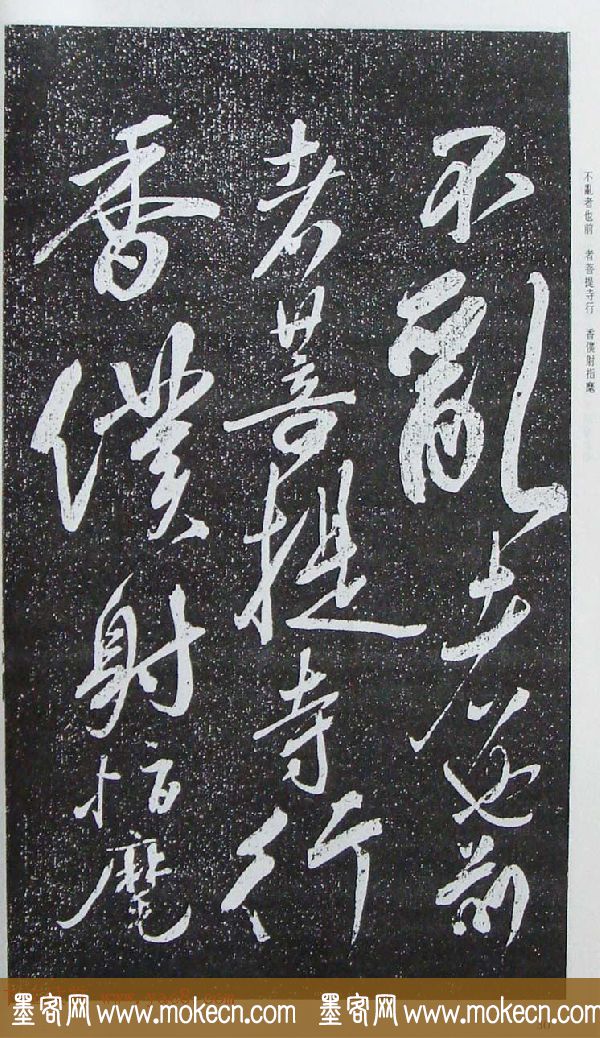 不亂者也前
者菩提寺行
香僕射指麾
不亂者也前 者菩提寺行 香僕射指麾
墨客网 www.mokecn.com 墨客网 www.mokecn.com